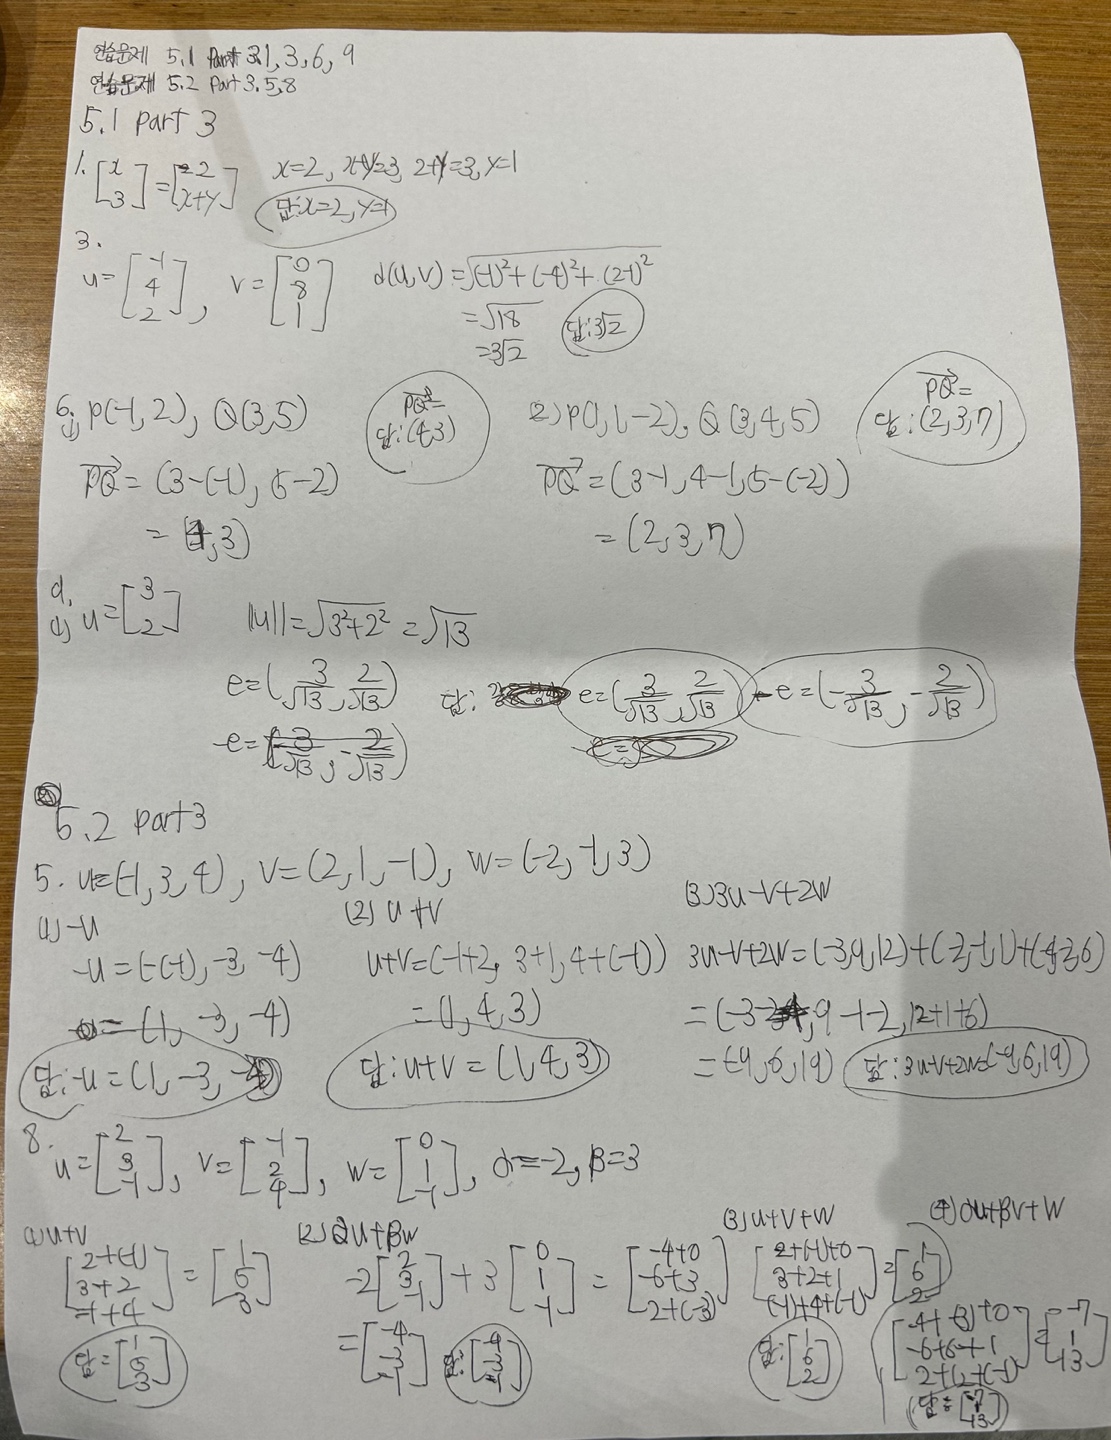 연습문제 5.1 Part 3.1, 3, 6, 9
연습문제 5.2 Part 3. 5, 8
5.1 part 3
1. [x 3] = [2 x+y] x=2, x+y=3, 2+y=3, y=1
답: x=2, y=1
3.
u = [-1 4 2], v = [0 8 1] d(u,v) = √(-1)²+(-4)²+(2-1)²
= √18
= 3√2
답: 3√2
6.
1) P(-1, 2), Q(3,5)
PQ = (3-(-1), 5-2)
= (4, 3)
PQ =
답: (4,3)
2) P(1, 1, -2), Q(3, 4, 5)
PQ = (3-1, 4-1, 5-(-2))
= (2, 3, 7)
PQ =
답: (2, 3, 7)
9.
1) u = [3 2] ||u|| = √3²+2² = √13
e = (3/√13, 2/√13)
-e = (-3/√13, -2/√13)
답: e = (3/√13, 2/√13) -e = (-3/√13, -2/√13)
5.2 part 3
5. u=(-1, 3, 4), v=(2, 1, -1), w=(-2, -1, 3)
(1) -u
-u = (-(-1), -3, -4)
= (1, -3, -4)
답: -u = (1, -3, -4)
(2) u+v
u+v = (-1+2, 3+1, 4+(-1))
= (1, 4, 3)
답: u+v = (1, 4, 3)
(3) 3u-v+2w
3u-v+2w = (-3, 9, 12)+(-2, -1, 1)+(-4, -2, 6)
= (-3-2-4, 9-1-2, 12+1+6)
= (-9, 6, 19)
답: 3u-v+2w=(-9, 6, 19)
8.
u = [2 3 -1], v = [-1 2 4], w = [0 1 -1], α=-2, β=3
(1) u+v
[2+(-1) 3+2 -1+4] = [1 5 3]
답 = [1 5 3]
(2) αu+βw
-2[2 3 -1] + 3[0 1 -1] = [-4+0 -6+3 2+(-3)]
= [-4 -3 -1]
답: [-4 -3 -1]
(3) u+v+w
[2+(-1)+0 3+2+1 (-1)+4+(-1)] = [1 6 2]
답: [1 6 2]
(4) αu+βv+w
[-4+(-3)+0 -6+6+1 2+12+(-1)] = [-7 1 13]
답 = [-7 1 13]